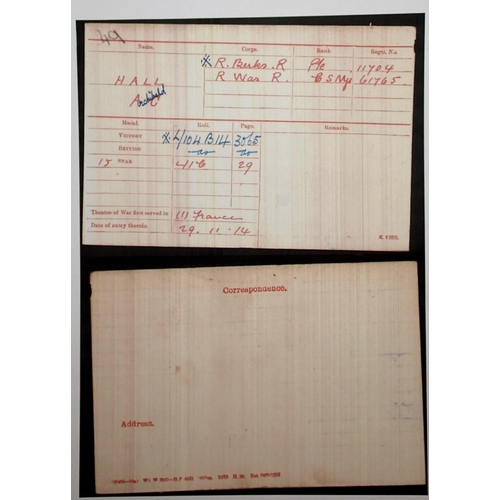 49
Name. Corps. Rank Regtl. No.
HALL × R. Berks. R Pte 11704
Archibald R War R. C S My 61765
Medal. Roll. Page. Remarks.
VICTORY × L/104 B14 3065
BRITISH do do
15 STAR 41C 29
Theatre of War first served in (1) France
Date of entry therein 29. 11. 14
K. 1380.
Correspondence.
Address.